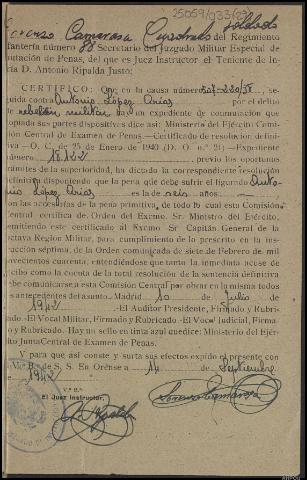 25059/033(23)
Lorenzo Camarasa Cuadrado Soldado
del Regimiento
fantería número 88 Secretario del Juzgado Militar Especial de
utación de Penas, del que es Juez Instructor el Teniente de In-
ría D. Antonio Ripalda Justo;
CERTIFICO: Que en la causa número
se-
guida contra Antonio López Arias por el delito
de rebelión militar hay un expediente de conmutación que
copiada sus partes dispositivas dice así: Ministerio del Ejército Comi-
Central de Examen de Penas.—Certificado de resolución defini-
—O. C. de 25 de Enero de 1940 (D. O. n.º 21)—Expediente
número 18.122 previo los oportunos
trámites de la superioridad, ha dictado la correspondiente resolución
definitiva disponiendo que la pena que debe sufrir el ligurando Anto-
nio López Arias es la de seis años —
con las accesorias de la pena primitiva, de todo lo cual esta Comisión
Central certifica de Orden del Excmo. Sr. Ministro del Ejército,
remitiendo este certificado al Excmo Sr Capitán General de la
Octava Región Militar, para cumplimiento de lo prescrito en la ins-
trucción séptima, de la Orden comunicada de siete de Febrero de mil
novecientos cuarenta, entendiéndose que tanto la inmediata acuse de
recibo como la cuenta de la total resolución de la sentencia definitiva
debe comunicarse a esta Comisión Central por obrar en la misma todos
los antecedentes del asunto.-Madrid 10 de Julio de
1942 -El Auditor Presidente, Firmado y Rubri-
cado.-El Vocal Militar, Firmado y Rubricado.-El Vocal Judicial, Firma-
do y Rubricado. Hay un sello en tinta azul que dice: Ministerio del Ejér-
cito Junta Central de Examen de Penas.
Y para que así conste y surta sus efectos expido el presente con
el V.º B.º de S. S. En Orense a 14 de Septiembre
de 1942
V.º B.º
El Juez Instructor,
Lorenzo Camarasa